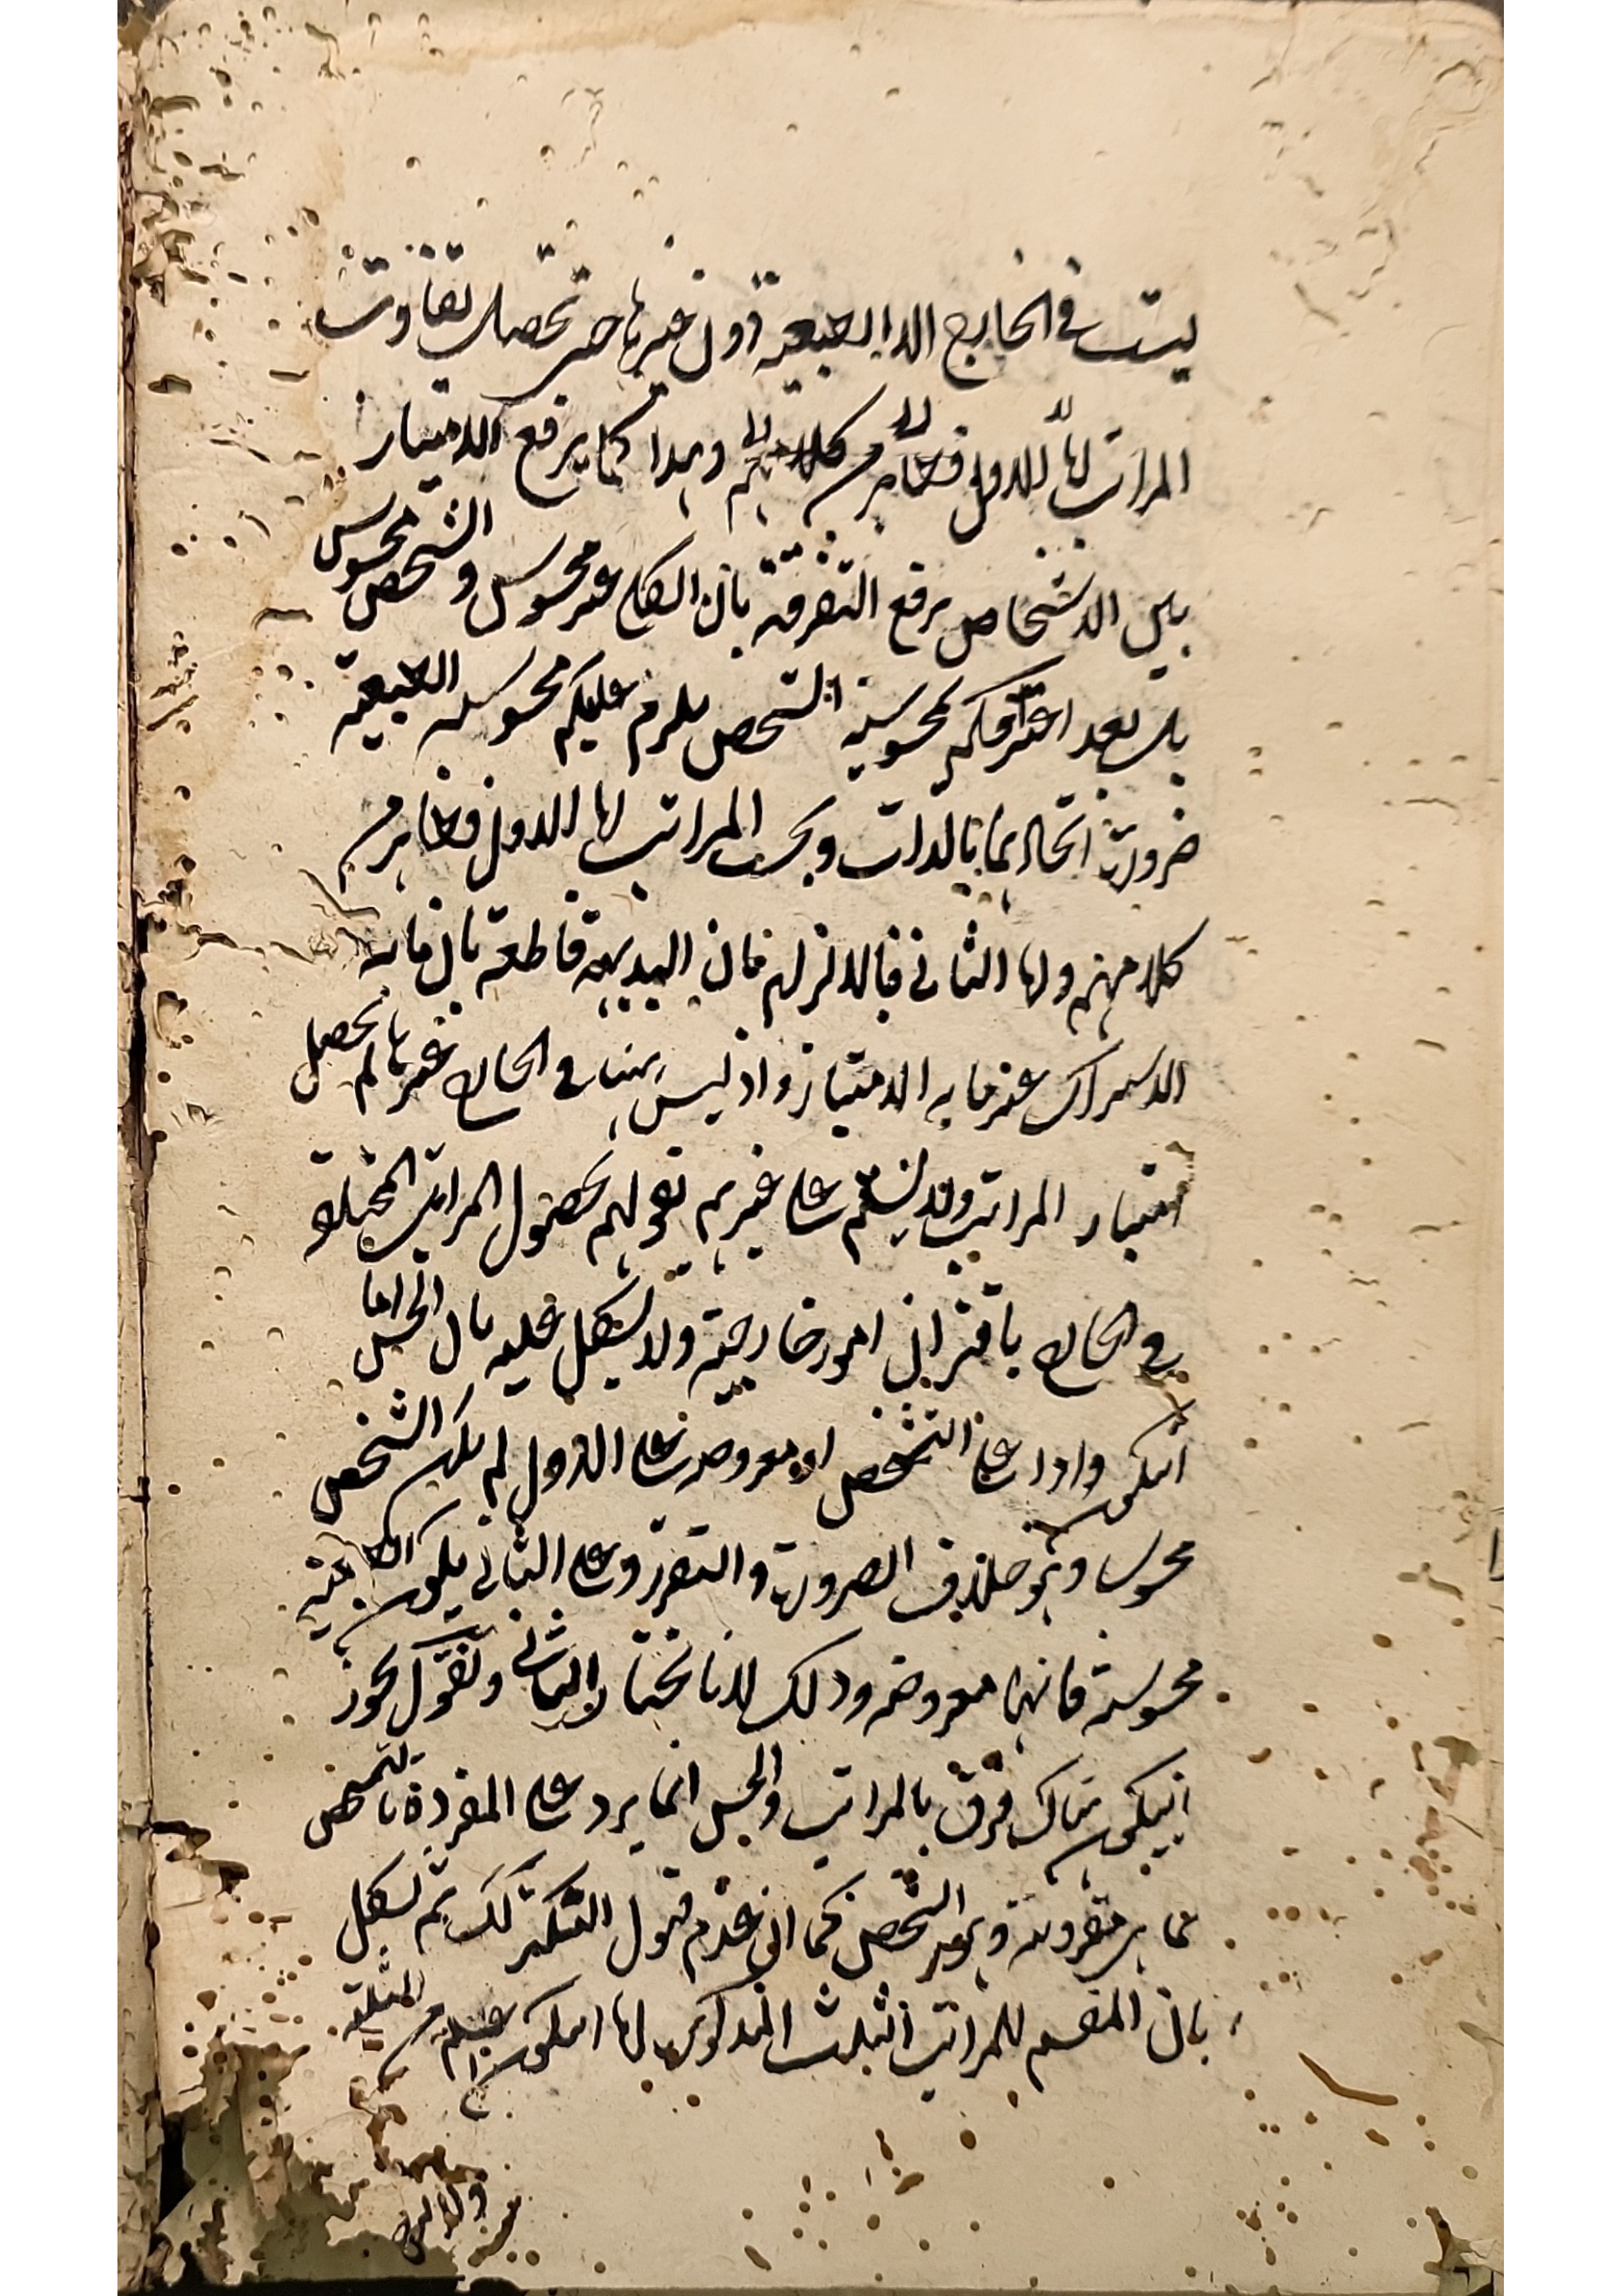 ليست في الخارج الا الطبيعة دون غيرها حتى تحصل تفاوت
المراتب اما الاول فظاهر من كلامهم وهذا كما يرفع الامتياز
بين الاشخاص يرفع التفرقة بان الكلي غير محسوس والشخص محسوس
بل بعد اعترافكم بمحسوسية الشخص يلزم عليكم محسوسية الطبيعة
ضرورة اتحادهما بالذات وبحسب المراتب اما الاول فظاهر من
كلامهم واما الثاني فبالالزام فان البديهة قاطعة بان ما به
الاشتراك غير ما به الامتياز واذ ليس هناك في الخارج غيرها لم يحصل
امتياز المراتب ولا يسلم على غيرهم قولهم بحصول المراتب المختلفة
في الخارج باقتران امور خارجية ولا يشكل عليه بان الحس اما
ان يكون واردا على التشخص او معروضه على الاول لم يكن الشخص
محسوسا وهو خلاف الضرورة والتقرر وعلى الثاني يكون الماهية
محسوسة فانها معروضه وذلك لانا نختار الثاني ونقول يجوز
ان يكون هناك فرق بالمراتب والحس انما يرد على المفردة بالتشخص
بما هي مقرونة وهو الشخص كما ان عدم قبول التكثر كك ثم يشكل
بان المقسم للمراتب الثلث المذكورة اما ان يكون المثلثة